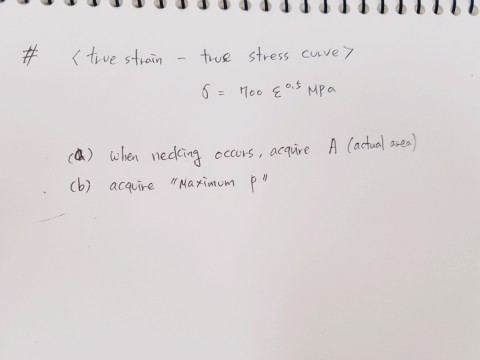 # <true strain - true stress curve>
σ = 700 ε^0.5 MPa
(a) when necking occurs, acquire A (actual area)
(b) acquire "Maximum p"